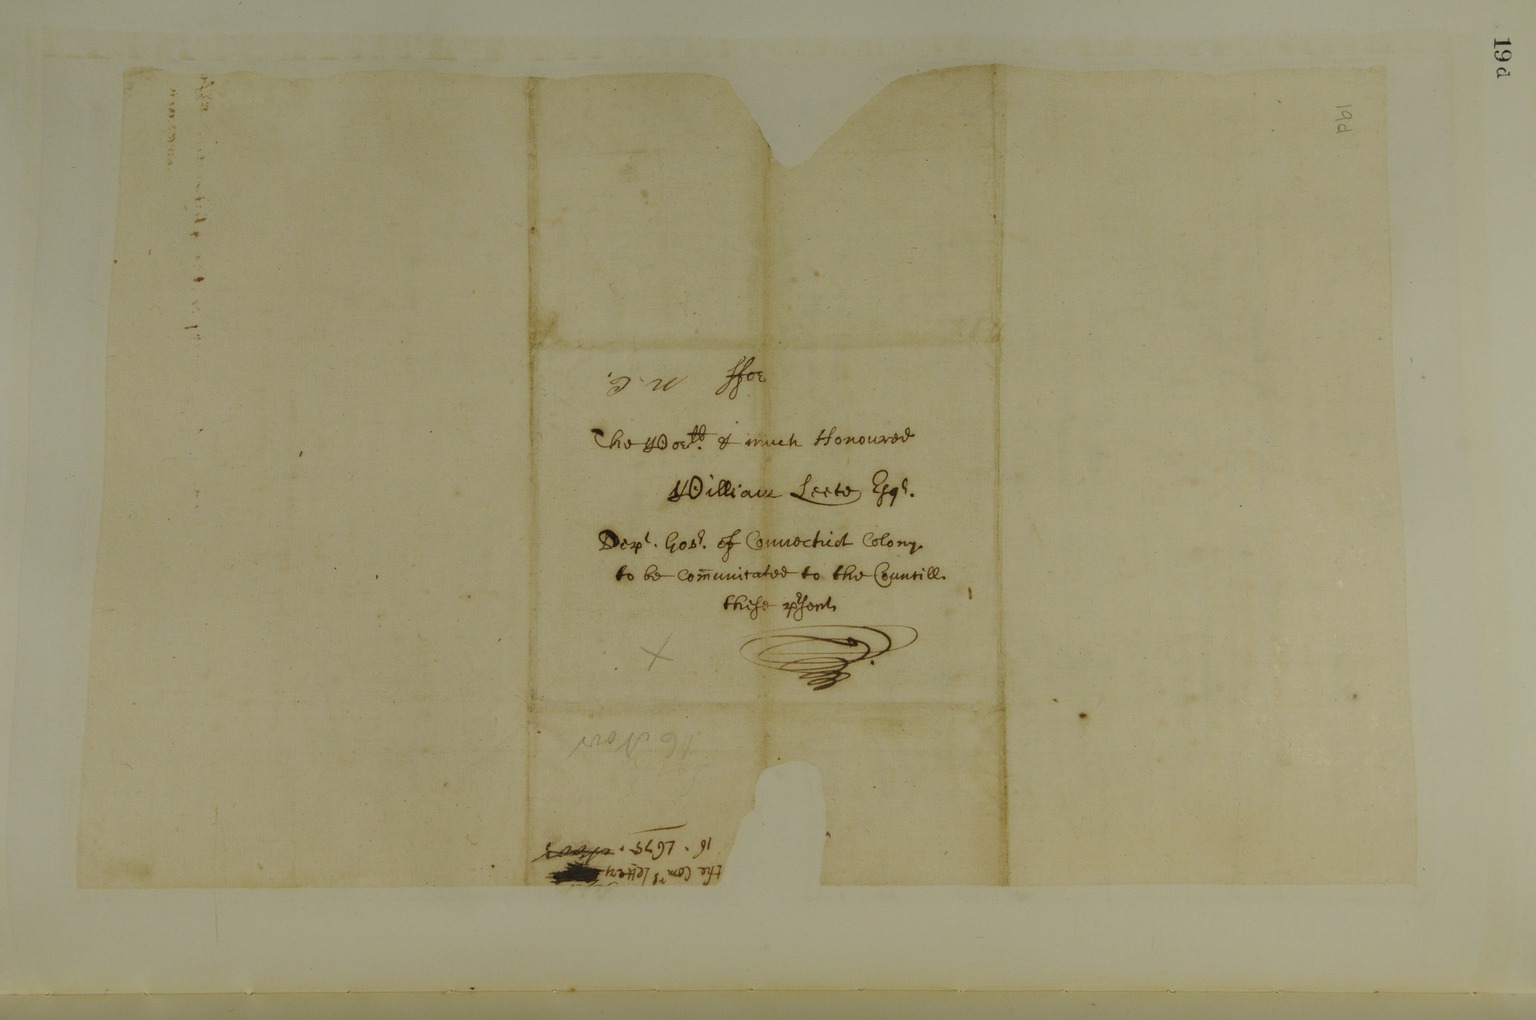 19d
19d
ffor
The Worll. & much Honoured
William Leete Esqr.
Dept. Govr. of Connectict Colony
to be comunicated to the Councill.
these prsent
X
16 Nov
16. 1675.
the Comrs letter